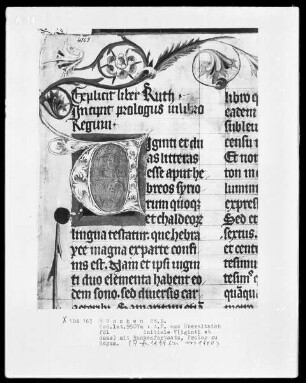 4563
Explicit liber Ruth ·
Incipit prologus in libro
Regum ·
Viginti et du
as litteras
esse aput he
breos syro
rum quoqz
et chaldeorz
lingua testatur. que hebre
ye magna ex parte confi
nis est. Nam et ipsi vigin
ti duo elementa habent eo
dem sono. sed diversis car
libro q
eadem
subleu
censu
Et non
lumini
expres
sextus.
Sed et
et cente
tesimo
tesimo
quam
X 104 763
München StB.
Cod.lat.9507a : A.T. aus Oberaltaich
fol Initiale V(iginti et
duas) mit Rankenfortsatz, Prolog zu
Regum.